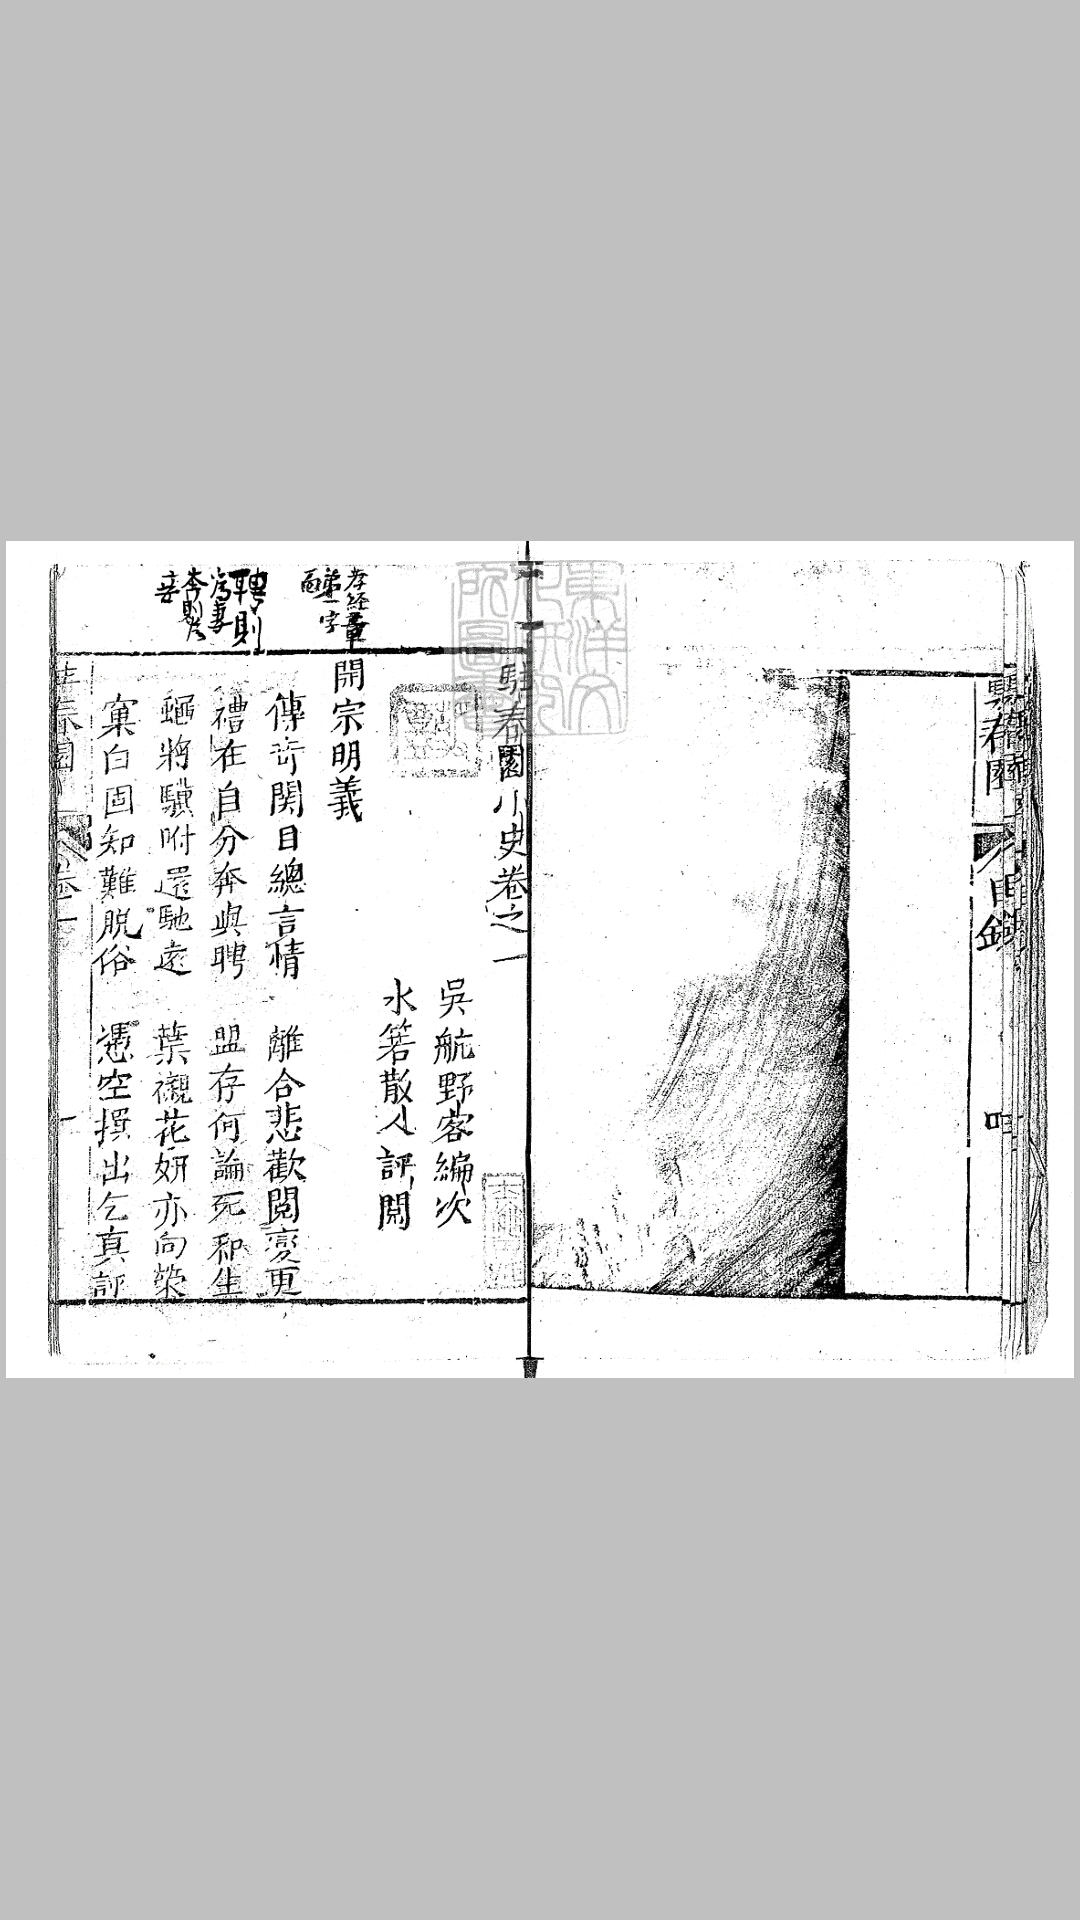 駐春園 目錄
四
駐春園小史卷之一
吳航野客編次
水箬散人評閱
開宗明義
傳奇関目總言情 離合悲歡閱變更
禮在自分奔與聘 盟存何論死和生
蠅將驥附還馳遠 葉襯花妍亦向榮
窠臼固知難脫俗 憑空撰出乞真評
孝経章
第一字
聘則
為妻
奔則为
妾
春園
卷一
一
東洋文